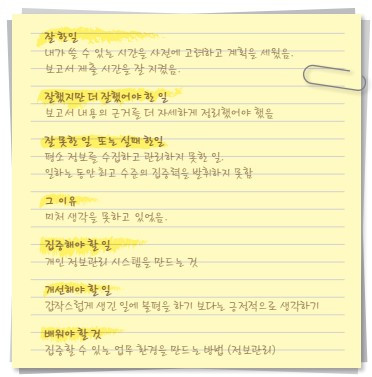 잘 한일
내가 쓸 수 있는 시간을 사전에 고려하고 계획을 세웠음.
보고서 제출 시간을 잘 지켰음.
잘했지만 더 잘했어야 한 일
보고서 내용의 근거를 더 자세하게 정리했어야 했음
잘 못한 일 또는 실패 한일
평소 정보를 수집하고 관리하지 못한 일.
일하는 동안 최고 수준의 집중력을 발휘하지 못함
그 이유
미처 생각을 못하고 있었음.
집중해야 할 일
개인 정보관리 시스템을 만드는 것
개선해야 할 일
갑작스럽게 생긴 일에 불평을 하기 보다는 긍정적으로 생각하기
배워야 할 것
집중할 수 있는 업무 환경을 만드는 방법 (정보관리)